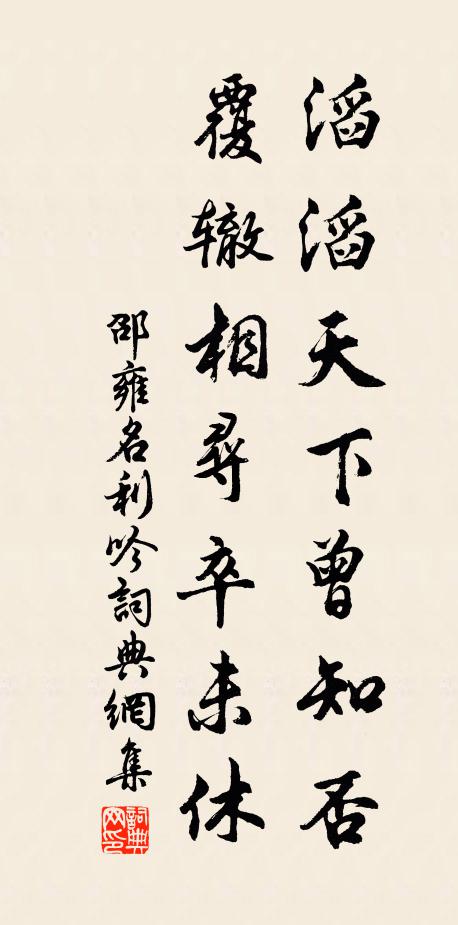 滔滔天下曾知否
覆辙相尋卒未休
邵雍名利吟詞典網集
詞典网印